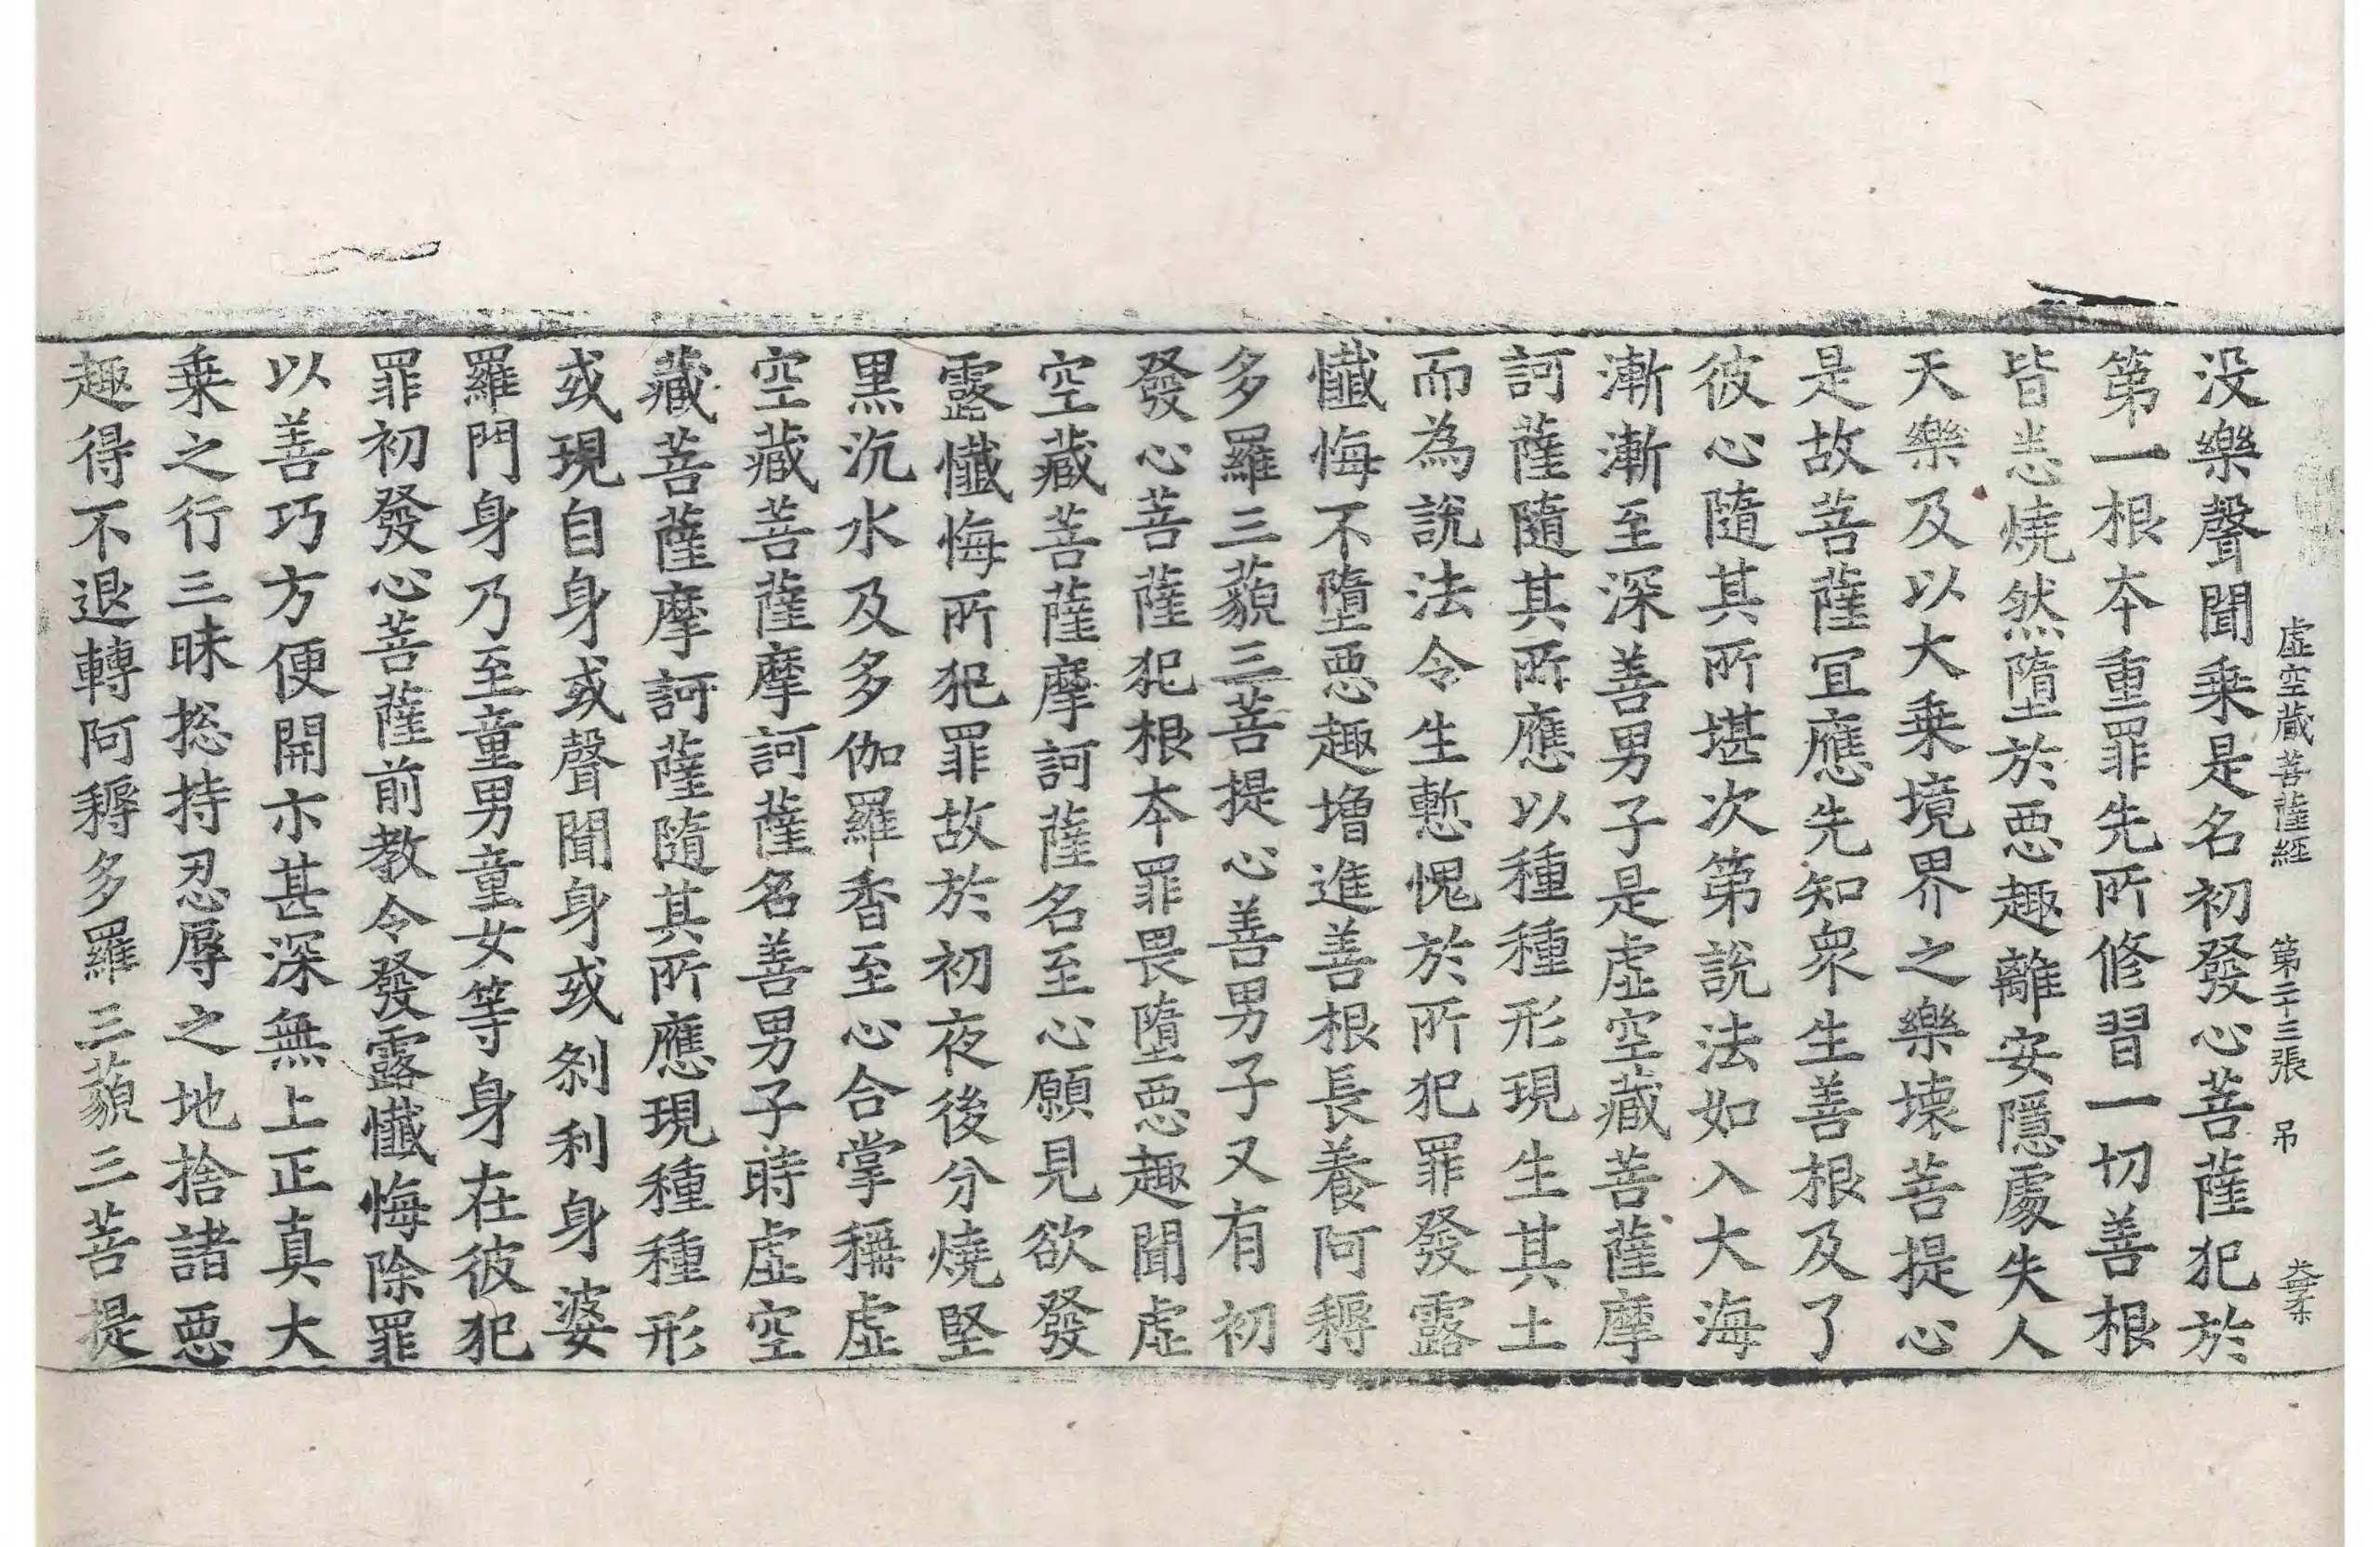 虛空蔵菩薩經 第二十三張 吊
没樂聲聞乗是名初發心菩薩犯於
第一根本重罪先所修習一切善根
皆悉燒然墮於惡趣離安隱處失人
天樂及以大乗境界之樂壊菩提心
是故菩薩冝應先知衆生善根及了
彼心隨其所堪次第說法如入大海
漸漸至深善男子是虛空藏菩薩摩
訶薩隨其所應以種種形現生其土
而為說法令生慙愧於所犯罪發露
懺悔不墮惡趣増進善根長養阿耨
多羅三藐三菩提心善男子又有初
發心菩薩犯根本罪畏墮惡趣聞虛
空藏菩薩摩訶薩名至心願見欲發
露懺悔所犯罪故於初夜後分燒堅
黒沉水及多伽羅香至心合掌稱虛
空藏菩薩摩訶薩名善男子時虛空
藏菩薩摩訶薩隨其所應現種種形
或現自身或聲聞身或刹利身婆
羅門身乃至童男童女等身在彼犯
罪初發心菩薩前教令發露懺悔除罪
以善巧方便開示甚深無上正真大
乗之行三昧捴持忍辱之地捨諸惡
趣得不退轉阿耨多羅三藐三菩提